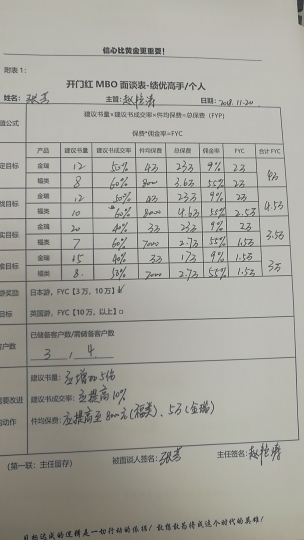 信心比黄金更重要！
附表1：
开门红 MBO 面谈表-绩优高手/个人
姓名： 张芳 主管： 日期：2018.11.20
值公式 建议书量×建议书成交率×件均保费=总保费（FYP）
保费*佣金率=FYC
产品 建议书量 建议书成交率 件均保费 总保费 佣金率 FYC 合计FYC
定目标 金瑞 12 50% 4万 23万 9% 2万 4万
福类 8 60% 8000 3.6万 55% 2万
战目标 金瑞 12 50% 4万 23万 9% 2万 4.5万
福类 10 60% 8000 4.6万 55% 2.5万
实目标 金瑞 20 40% 3万 23万 9% 2万 3.5万
福类 7 60% 7000 2.7万 55% 1.5万
目标 金瑞 15 40% 3万 17万 9% 1.5万 3万
福类 8 50% 7000 2.7万 55% 1.5万
游奖励 日本游，FYC【3万，10万】
目标 英国游，FYC【10万，以上】□
客户数 已储备客户数/需储备客户数
3 , 4
需要改进 建议书量： 应增加5份
建议书成交率： 应提高10%
动作 件均保费： 应提高至8000元（福类）、5万（金瑞）
（第一联：主任留存） 被面谈人签名： 张芳 主任签名：
目标达成的逻辑是一切行动的依据！敢想敢为将成这个时代的英雄！